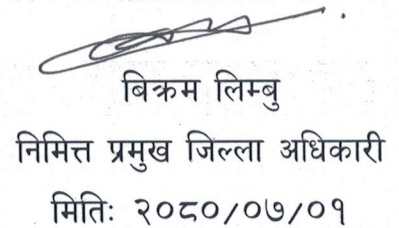 बिक्रम लिम्बु
निमित्त प्रमुख जिल्ला अधिकारी
मितिः २०८०/०७/०१